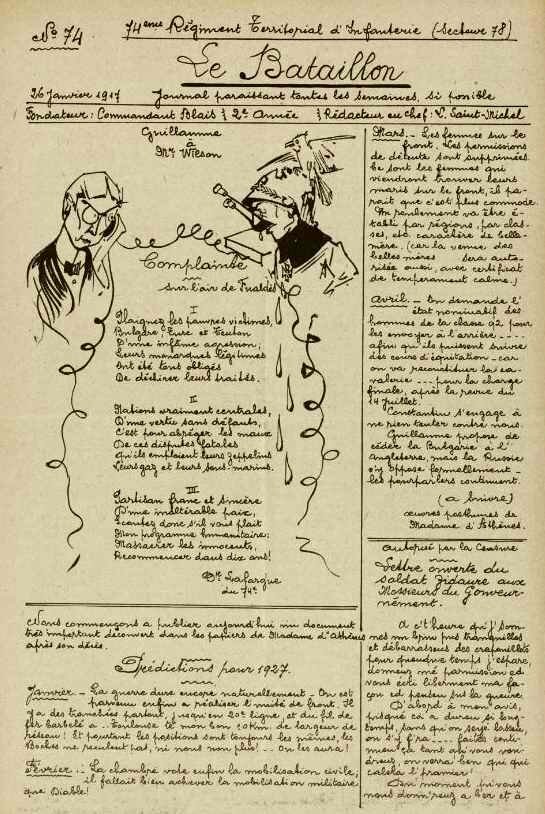 No 74
74ème Régiment Territorial d'Infanterie (Secteur 78)
Le Bataillon
26 Janvier 1917 Journal paraissant toutes les semaines, si possible
Fondateur: Commandant Blais 2e Année Rédacteur en Chef: L. Saint-Michel
Guillaume
à
Mr Wilson
Complainte
sur l'air de Fualdès
I
Plaignez les pauvres victimes,
Bulgare, Turc et Teuton
D'une infâme agression;
Leurs monarques légitimes
Ont été tous obligés
De déchirer leurs traités.
II
Nations vraiment centrales,
D'une vertu sans défauts,
C'est pour abréger les maux
De ces disputes fatales
Qu'ils emploient leurs zeppelins
Leurs gaz et leurs sous-marins.
III
Partisan franc et sincère
D'une inaltérable paix,
Ecoutez donc s'il vous plaît
Mon programme humanitaire:
Massacrer les innocents,
Recommencer dans dix ans!
Dr Lafargue
du 74e
Nous commençons a publier aujourd'hui un document
très important découvert dans les papiers de Madame d'Athènes
après son décès.
Prédictions pour 1927.
Janvier.- La guerre dure encore naturellement - On est
parvenu enfin a réaliser l'unité de front. Il
y a des tranchées partout, jusqu'en 20e ligne, et du fil de
fer barbelé a Toulouse de mon bon, de largeur de
réseau! Et pourtant les positions sont toujours les mêmes, les
Boches ne reculent pas, ni nous non plus! - On les aura!
Février.- La chambre vote enfin la mobilisation civile;
il fallait bien achever la mobilisation militaire
que Diable!
Mars.- Les femmes sur le
front. Les permissions
de détente sont supprimées.
Ce sont les femmes qui
viendront trouver leurs
maris sur le front, il pa-
rait que c'est plus commode.
Un roulement va être é-
tabli par régions, par clas-
ses, etc. caractère de belle-
mère. (car la venue des
belles-mères sera auto-
risée aussi, avec certificat
de tempérament calme.)
Avril.- On demande l'
état nominatif des
hommes de la classe 92 pour
les envoyer à l'arrière ....
afin qu'ils puissent suivre
des cours d'équitation - car
on va reconstituer la ca-
valerie ... pour la charge
finale, après la revue du
14 Juillet.
Constantin s'engage à
ne rien tenter contre nous.
Guillaume propose de
céder la Bulgarie à l'
Angleterre, mais la Russie
s'y oppose formellement -
les pourparlers continuent.
(a suivre)
œuvres posthumes de
Madame d'Athènes.
autorisé par la Censure
Lettre ouverte du
soldat Zidaure aux
Monsieurs du Gouver-
nement.
A c't'heure qu'j'som-
mes un p'eu pus tranquilles
et débarrassés des crapouillots
pour queuque temps j'espère,
donnez mé permission ed
vous écri liberment ma fa-
çon ed penser su la guerre.
D'abord à mon avis,
pisqué ça a duré si long-
temps, sans qu'on soye lassé,
on s'y f'ra ... faites conti-
nuer ça tant qui vous vou-
drez, on verra ben qui qui
calera l'premier!
nous donn'rez a bér et à